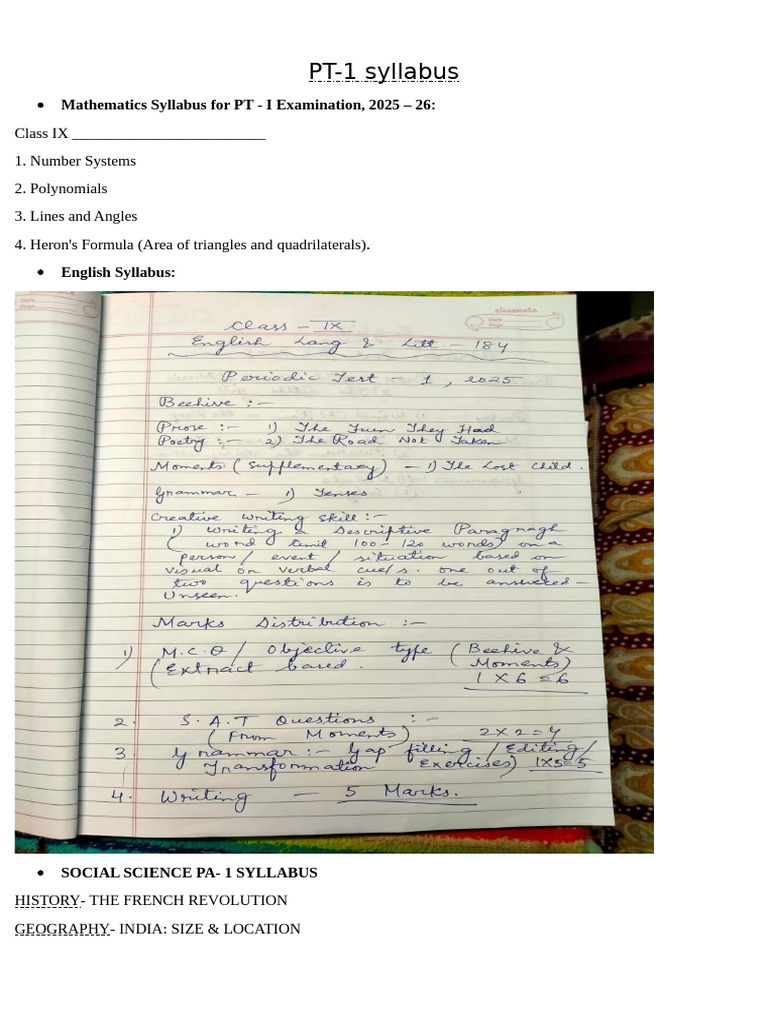 PT-1 syllabus
• Mathematics Syllabus for PT - I Examination, 2025 – 26:
Class IX _________________________
1. Number Systems
2. Polynomials
3. Lines and Angles
4. Heron's Formula (Area of triangles and quadrilaterals).
• English Syllabus:
classmate
Class - IX
English Lang & Litt - 184
Periodic Test - 1, 2025
Beehive :-
Prose :- 1) The Fun They Had
Poetry :- 2) The Road Not Taken
Moments (Supplementary) - 1) The Lost Child.
Grammar - 1) Tenses
Creative Writing Skill :-
1) Writing a Descriptive Paragragh
( word limit 100-120 words) on a
person / event / situation based on
visual or verbal cue/s. one out of
two questions is to be answered -
Unseen.
Marks Distribution :-
1) M.C.Q / Objective type ( Beehive &
( Extract based. Moments)
1 X 6 = 6
2. S.A.T Questions :-
( From Moments) 2 x 2 = 4
3. Grammar :- Gap filling / Editing /
Transformation Exercises) 1X5=5
4. Writing - 5 Marks.
• SOCIAL SCIENCE PA- 1 SYLLABUS
HISTORY- THE FRENCH REVOLUTION
GEOGRAPHY- INDIA: SIZE & LOCATION